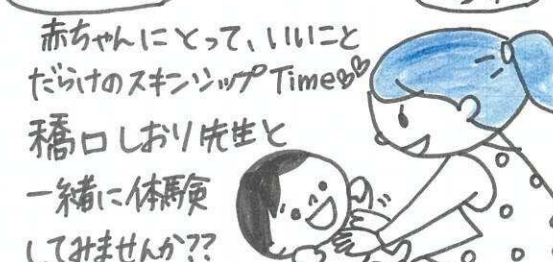 赤ちゃんにとって、いいこと
だらけのスキンシップTime♡♡
橋口しおり先生と
一緒に体験
してみませんか??